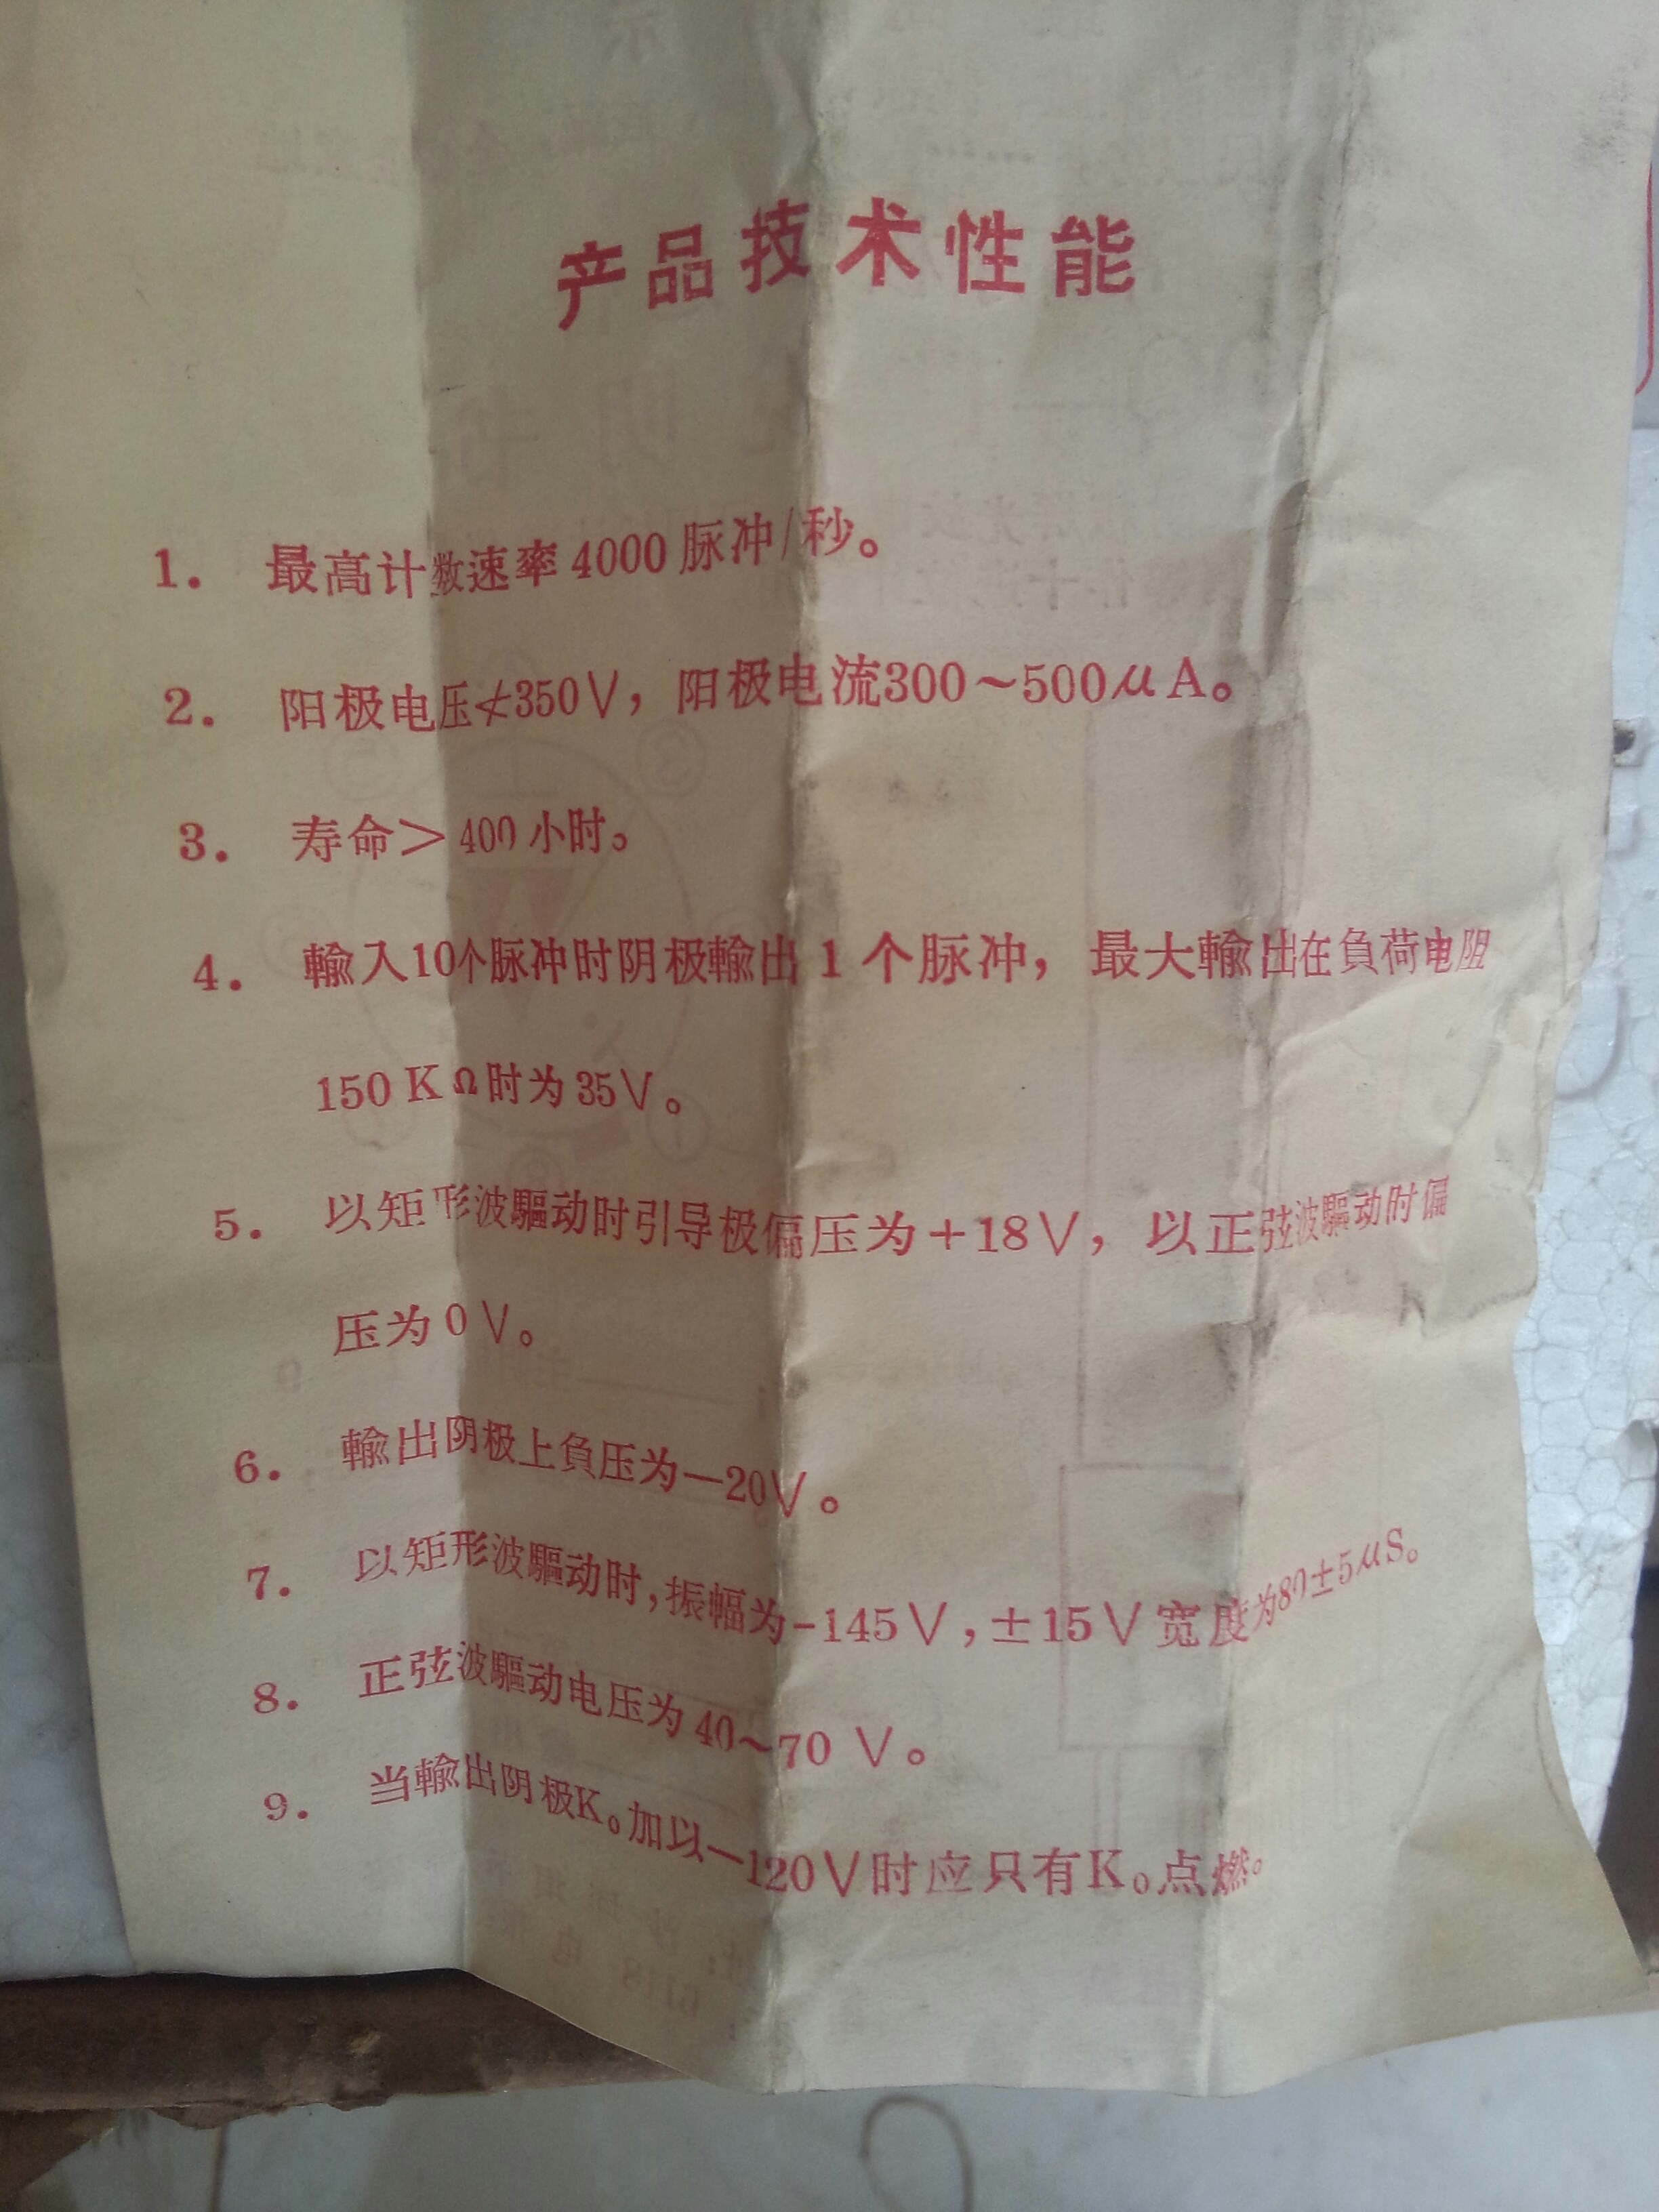 产品技术性能
1. 最高计数速率4000脉冲/秒。
2. 阳极电压≮350V，阳极电流300～500μA。
3. 寿命＞400小时。
4. 輸入10个脉冲时阴极輸出1个脉冲，最大輸出在負荷电阻
150KΩ时为35V。
5. 以矩形波驅动时引导极偏压为+18V，以正弦波驅动时偏
压为0V。
6. 輸出阴极上負压为—20V。
7. 以矩形波驅动时,振幅为-145V,±15V宽度为80±5μS。
8. 正弦波驅动电压为40～70V。
9. 当輸出阴极K₀加以—120V时应只有K₀点燃。